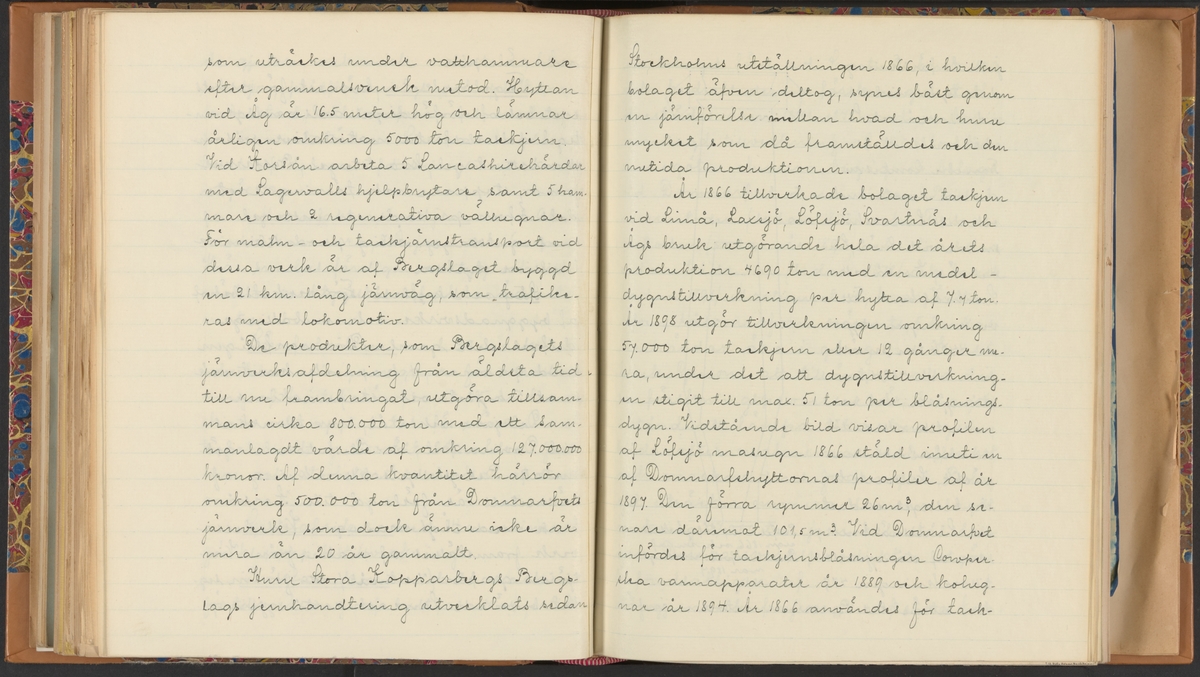 som uträckes under vattenhammare
efter gammalsvensk metod. Hyttan
vid Åg är 16.5 meter hög och lämnar
årligen omkring 5000 ton tackjern.
Vid Korsån arbeta 5 Lancashirehärdar
med Lagerwalls hjelpbrytare, samt 5 ham-
mare och 2 regenerativa vällugnar.
För malm- och tackjärnstransport vid
dessa verk är af Bergslaget byggd
en 21 km. lång järnväg, som trafike-
ras med lokomotiv.
De produkter, som Bergslagets
järnverksafdelning från äldsta tid
till nu frambringat, utgöra tillsam-
mans cirka 800.000 ton med ett sam-
manlagdt värde af omkring 127.000.000
kronor. Af denna kvantitet härrör
omkring 500.000 ton från Domnarfvets
järnverk, som dock ännu icke är
mera än 20 år gammalt.
Huru Stora Kopparbergs Bergs-
lags jernhandtering utvecklats sedan
Stockholms utställningen 1866, i hvilken
bolaget äfven deltog, synes bäst genom
en jämförelse mellan hvad och huru
mycket som då framställdes och den
nutida produktionen.
År 1866 tillverkade bolaget tackjern
vid Limå, Laxsjö, Löfsjö, Svartnäs och
Ågs bruk utgörande hela det årets
produktion 4690 ton med en medel-
dygnstillverkning per hytta af 7.7 ton.
År 1898 utgör tillverkningen omkring
57.000 ton tackjern eller 12 gånger me-
ra, under det att dygnstillverkning-
en stigit till max. 51 ton per blåsnings-
dygn. Vidstående bild visar profilen
af Löfsjö masugn 1866 stäld inuti en
af Domnarfshyttornas profiler af år
1897. Den förra rymmer 26 m³, den se-
nare däremot 101,5 m³. Vid Domnarfvet
infördes för tackjernsblåsningen Cowper-
ska varmapparater år 1889 och kolug-
nar år 1894. År 1866 användes för tack-